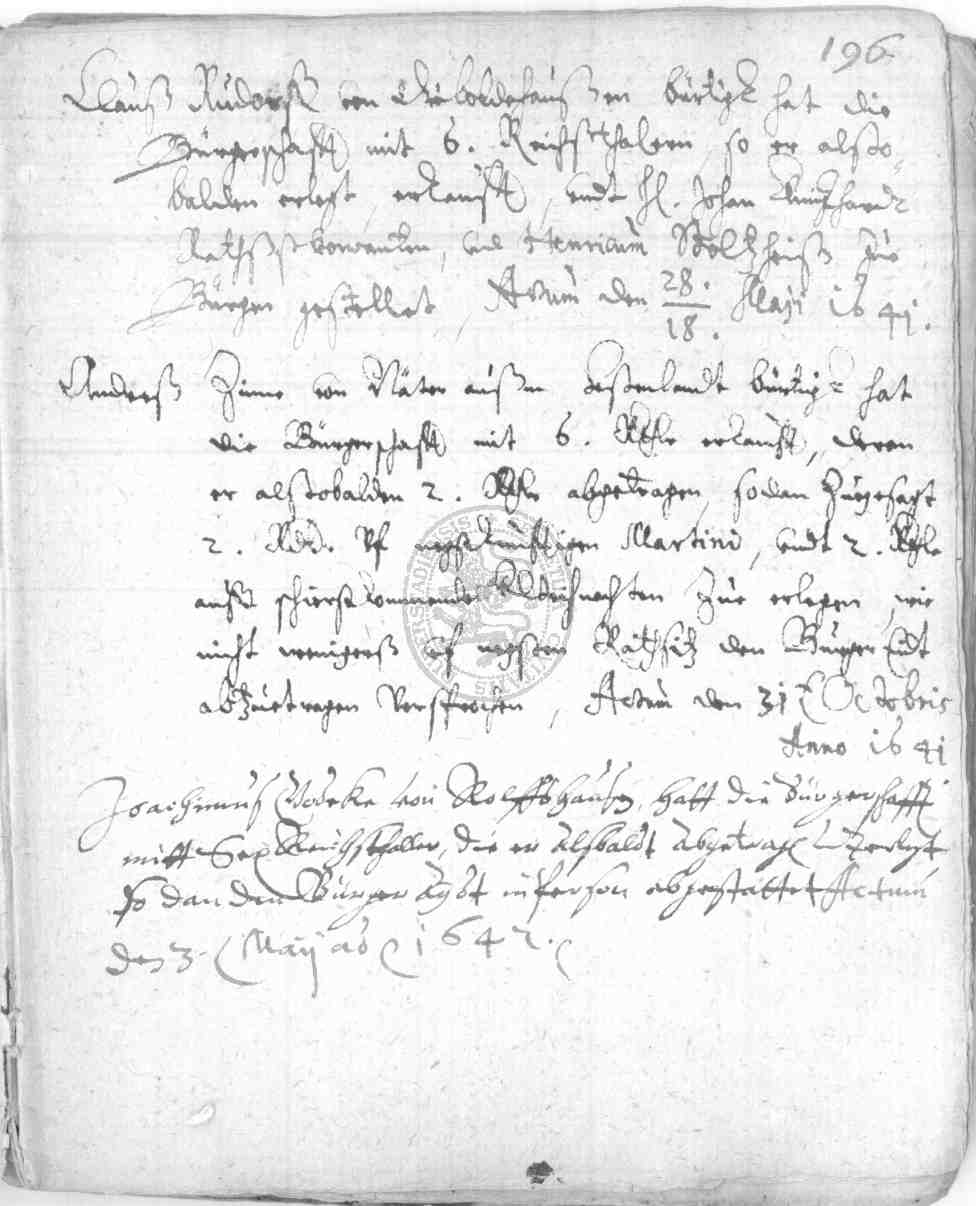 196
Clauß Rudorff von Gieboldehaußen bürtigk hat die
Bürgerschafft mit 6. Reichsthalern so er alßo-
balden erlegt, erkaufft, undt H. Johan Reinhardt
Rathßverwandten, und Henricum Stoltzheiß zue
Bürgen gestellet, Actum den 28./18. Maji 1641.
Andreß Zinne von Näter außm Heßenlandt bürtigk hat
die Bürgerschafft mit 6. Rthlr erkaufft, deren
er alßobalden 2. Rthlr abgetragen, sodan Zuegesagt
2. Rthl. Uf negstkünftigen Martini, undt 2. Rthlr
auff schierstkommende Weihnachten Zue erlegen, wie
nicht wenigerß uf negsten Rathsitz den Bürger Eidt
abZuetragen Versprochen, Actum den 31 Octobris
Anno 1641
Joachimuß von Rolffshausen, hatt die bürgerschafft
mitt Sex Reichsthaller, die er Alsbaldt Abgetragen erlegt
So dan den Bürger Aydt in person abgestattet Actum
den 3. Maij ao 1642.
UNIVERSITATIS CIVITATIS